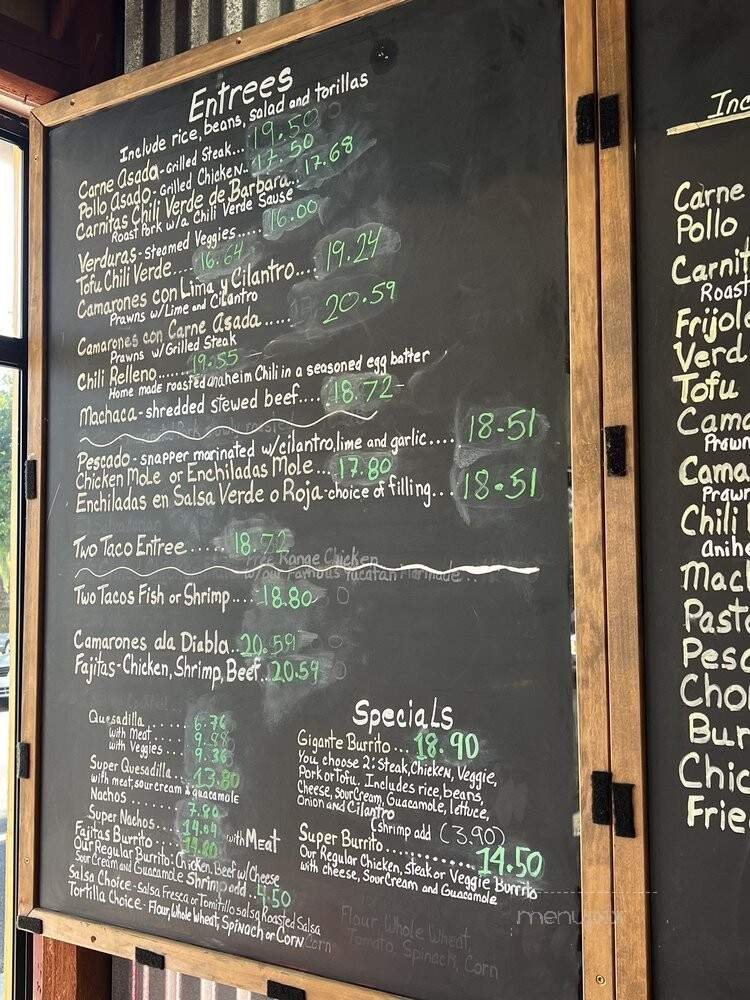 Entrees
Include rice, beans, salad and torillas
Carne Asada - Grilled Steak... 19.50
Pollo Asado - Grilled Chicken.. 17.50
Carnitas Chili Verde de Barbara.. 17.68
Roast Pork w/a Chili Verde Sause
Verduras - Steamed Veggies..... 16.00
Tofu Chili Verde.... 16.64
Camarones con Lima y Cilantro.... 19.24
Prawns w/Lime and Cilantro
Camarones con Carne Asada ..... 20.59
Prawns w/Grilled Steak
Chili Relleno....... 19.55
Home made roasted anaheim Chili in a seasoned egg batter
Machaca - shredded stewed beef.... 18.72
Pescado - snapper marinated w/cilantro, lime and garlic.... 18.51
Chicken Mole or Enchiladas Mole ... 17.80
Enchiladas en Salsa Verde o Roja - choice of filling... 18.51
Two Taco Entree ..... 18.72
Range Chicken
w/our Famous Yucatan Marinade ..
Two Tacos Fish or Shrimp... 18.80
Camarones ala Diabla.. 20.59
Fajitas - Chicken, Shrimp, Beef.. 20.59
Quesadilla ...... 6.76
with Meat..... 9.98
with Veggies.... 9.36
Super Quesadilla ... 13.80
with meat, sour cream & guacamole
Nachos ........ 7.80
Super Nachos... 14.04 with Meat
Fajitas Burrito...
Our Regular Burrito: Chicken, Beef w/Cheese
Sour Cream and Guacamole Shrimp add.. 4.50
Salsa Choice - Salsa Fresca or Tomitillo salsa Roasted Salsa
Tortilla Choice - Flour, Whole Wheat, Spinach or Corn Corn
Specials
Gigante Burrito... 18.90
You choose 2: Steak, Chicken, Veggie,
Pork or Tofu. Includes rice, beans,
Cheese, Sour Cream, Guacamole, lettuce,
Onion and Cilantro
(shrimp add (3.90)
Super Burrito............... 14.50
Our Regular Chicken, Steak or Veggie Burrito
with cheese, Sour Cream and Guacamole
Flour, Whole Wheat,
Tomato, Spinach, Corn
Inc
Carne
Pollo
Carnit
Roast
Frijole
Verd
Tofu
Cama
Prawn
Cama
Prawn
Chili
Anihe
Macl
Past
Pesc
Cho
Bur
Chic
Frie
menu